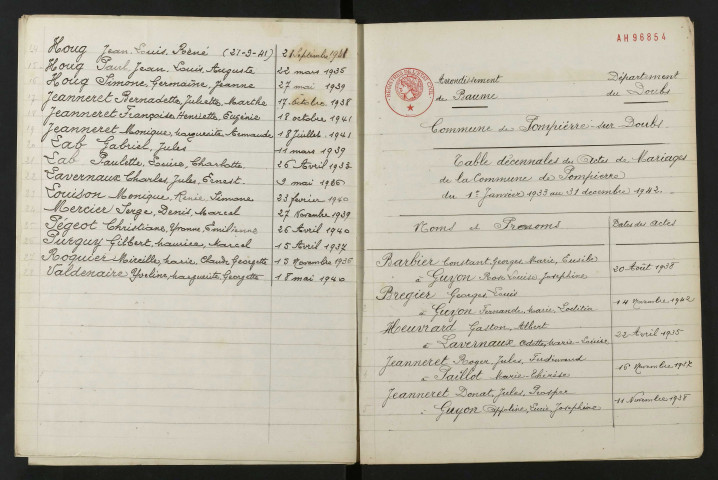 Houg Jean Louis René (21-9-41) 21 Septembre 1941
Houg Paul Jean Louis Auguste 22 mars 1936
Houg Simone, Germaine, Jeanne 27 mai 1939
Jeanneret Bernadette, Juliette Marthe 17 Octobre 1938
Jeanneret Françoise Henriette Eugénie 18 octobre 1941
Jeanneret Monique, Marguerite Armande 18 Juillet 1941
Lab Gabriel, Jules 11 mars 1939
Lab Paulette, Louise, Charlotte 26 Avril 1933
Lavernaux Charles, Jules, Ernest 9 mai 1936
Louison Monique, Renée Simone 23 février 1940
Mercier Serge, Denis, Marcel 27 Novembre 1939
Pégeot Christiane, Yvonne Emilienne 26 Avril 1940
Purguy Gilbert, Maurice, Marcel 15 Avril 1937
Roquier Mireille, Marie, Claude Georgette 13 Novembre 1936
Valdenaire Yveline, Marguerite Georgette 18 mai 1940
AH96854
Arrondissement
de Baume
Département
du Doubs
Commune de Pompierre sur Doubs
Table décennales des Actes de Mariages
de la Commune de Pompierre
du 1er Janvier 1933 au 31 decembre 1942.
Noms et Prenoms Dates des actes
Barbier Constant Georges Marie,
à Guyon Rose Louise Josephine 20 Août 1938
Bregier Georges Louis
à Guyon Fernande Marie Laetitia 14 Novembre 1942
Heuvrard Gaston, Albert
à Lavernaux Odette, Marie-Louise 22 Avril 1935
Jeanneret Roger Jules, Ferdinand
à Paillot Marie-Thérèse 16 Novembre 1937
Jeanneret Donat, Jules, Prosper
à Guyon Appoline, Lucie, Josephine 11 Novembre 1938